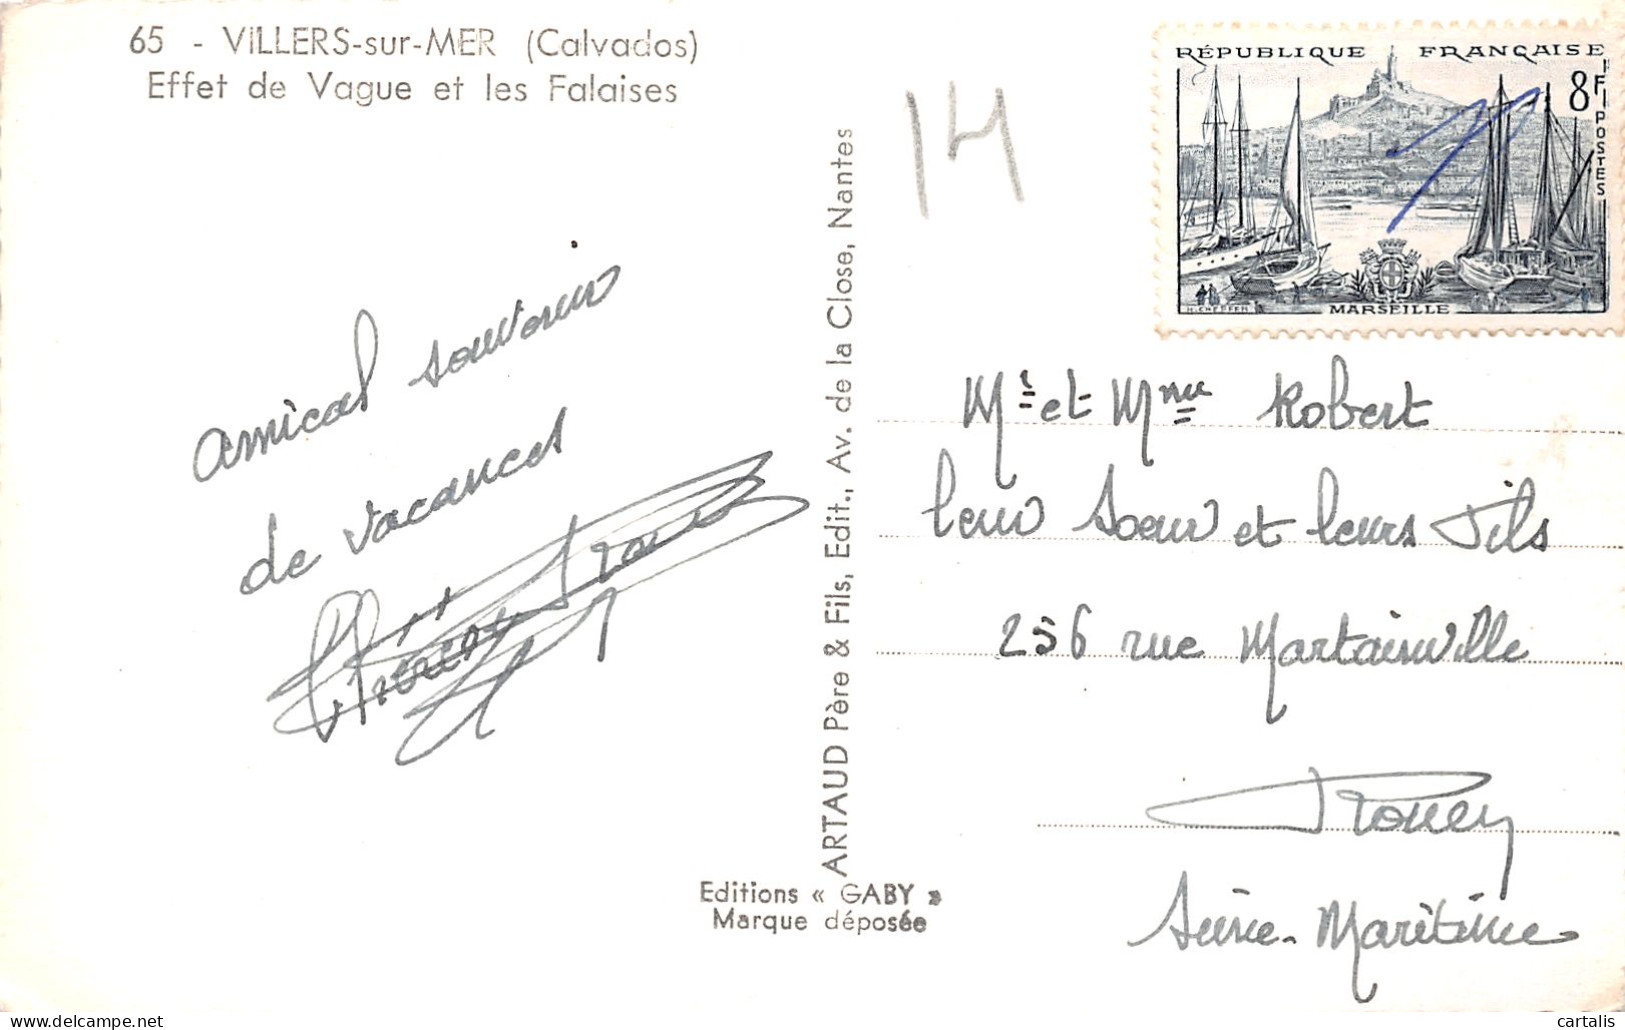 65 - VILLERS-sur-MER (Calvados)
Effet de Vague et les Falaises
14
RÉPUBLIQUE FRANÇAISE
8F
POSTES
MARSEILLE
amical souvenir
de vacances
ARTAUD Père & Fils, Edit., Av. de la Close, Nantes
Mr et Mme Robert
leur Soeur et leurs Fils
256 rue Martainville
Rouen
Seine-Maritime
Editions « GABY »
Marque déposée
cartalis